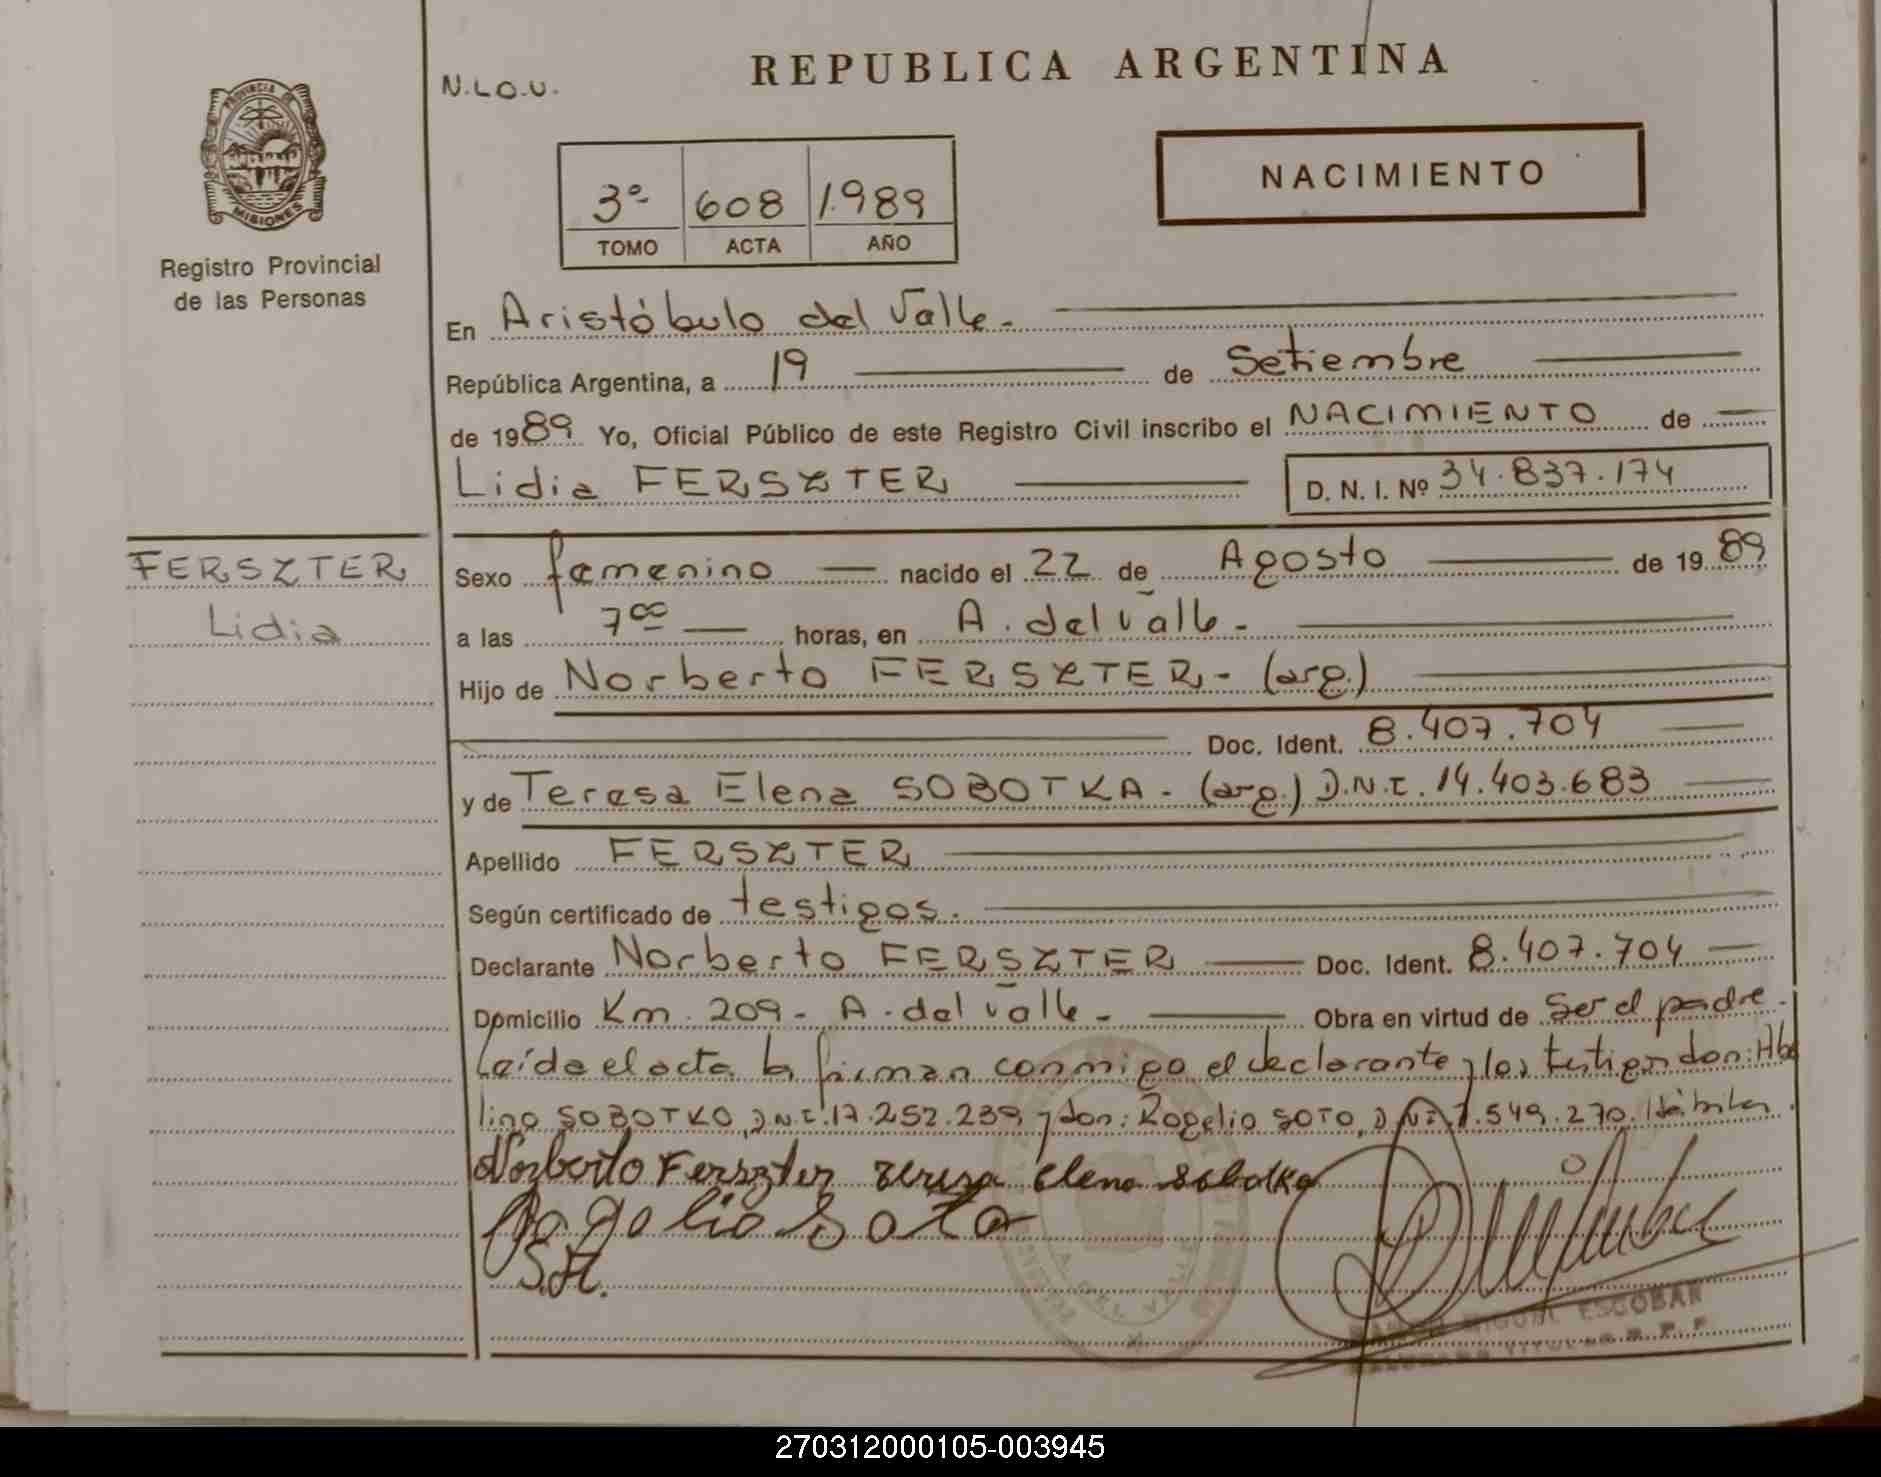 REPUBLICA ARGENTINA
N.L.O.U.
PROVINCIA DE
MISIONES
Registro Provincial
de las Personas
NACIMIENTO
3º 608 1.989
TOMO ACTA AÑO
En Aristóbulo del Valle.
República Argentina, a 19 de Setiembre
de 1989 Yo, Oficial Público de este Registro Civil inscribo el NACIMIENTO de
Lidia FERSZTER D. N. I. Nº 34.837.174
FERSZTER
Lidia
Sexo femenino nacido el 22 de Agosto de 1989
a las 7 00 horas, en A. del Valle.
Hijo de Norberto FERSZTER. (arg.)
Doc. Ident. 8.407.704
y de Teresa Elena SOBOTKA. (arg.) D.N.I. 14.403.683
Apellido FERSZTER
Según certificado de testigos.
Declarante Norberto FERSZTER Doc. Ident. 8.407.704
Domicilio Km. 209. A. del Valle. Obra en virtud de ser el padre.
Leída el acta la firman conmigo el declarante y los testigos don:
lino SOBOTKO, D.N.I. 17.252.239 y don: Rogelio SOTO, D.N.I. 7.549.270.
Norberto Ferszter Teresa Elena Sobotka
Rogelio Soto
S.H.
MIGUEL ESCOBAR
270312000105-003945